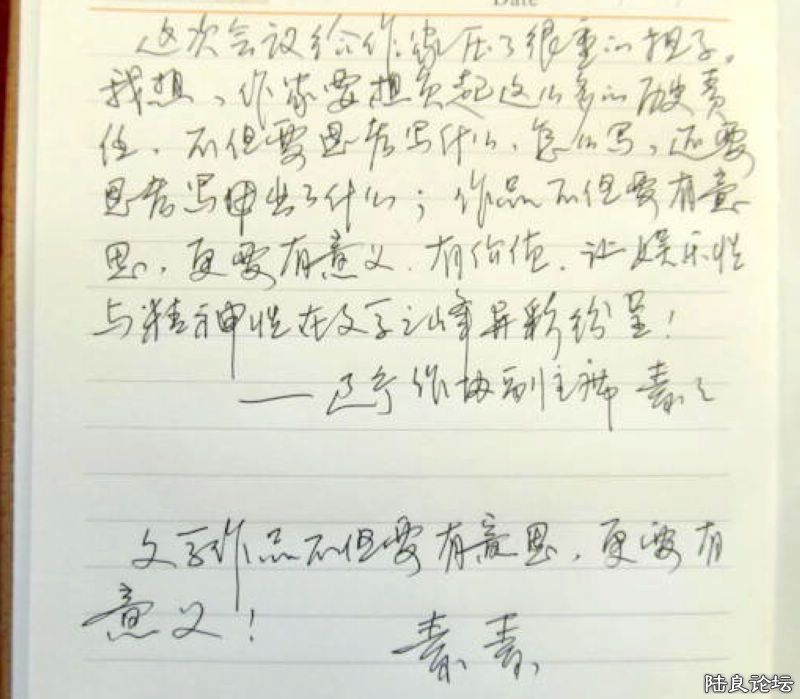 Date
这次会议给作家压了很重的担子。
我想，作家要担负起这么多的历史责
任，不但要思考写什么，怎么写，还要
思考写出了什么；作品不但要有意
思，更要有意义、有价值，让娱乐性
与精神性在文学之峰异彩纷呈！
——辽宁作协副主席 素素
文学作品不但要有意思，更要有
意义！
素素
陆良论坛